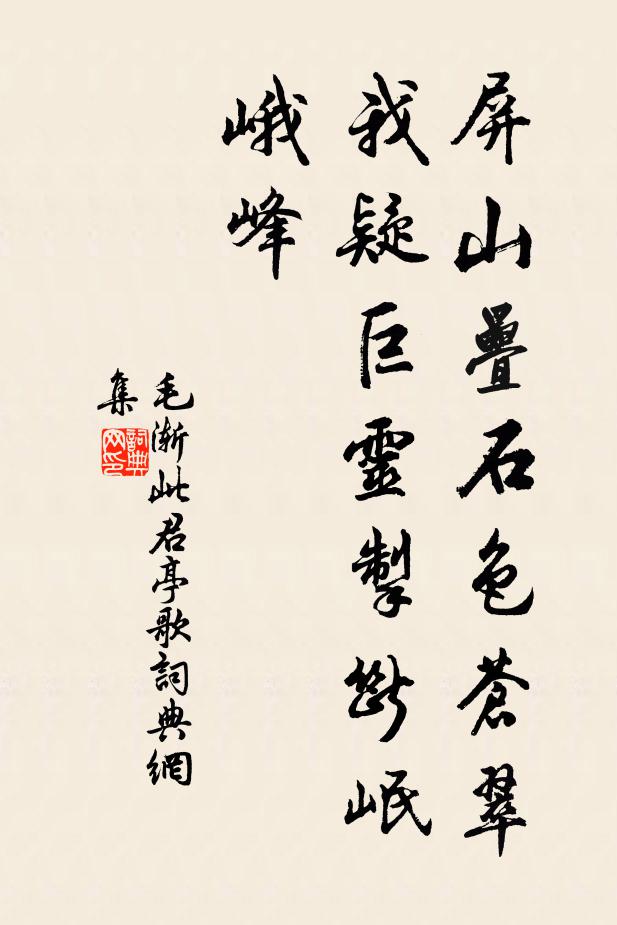 屏山疊石色蒼翠
我疑巨靈掣斷岷
峨峰
毛漸此君亭歌詞典網
集
詞典
网印